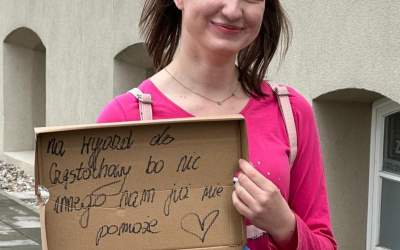 na wyjazd do
Częstochowy bo nic
innego nam już nie
pomoże ♡